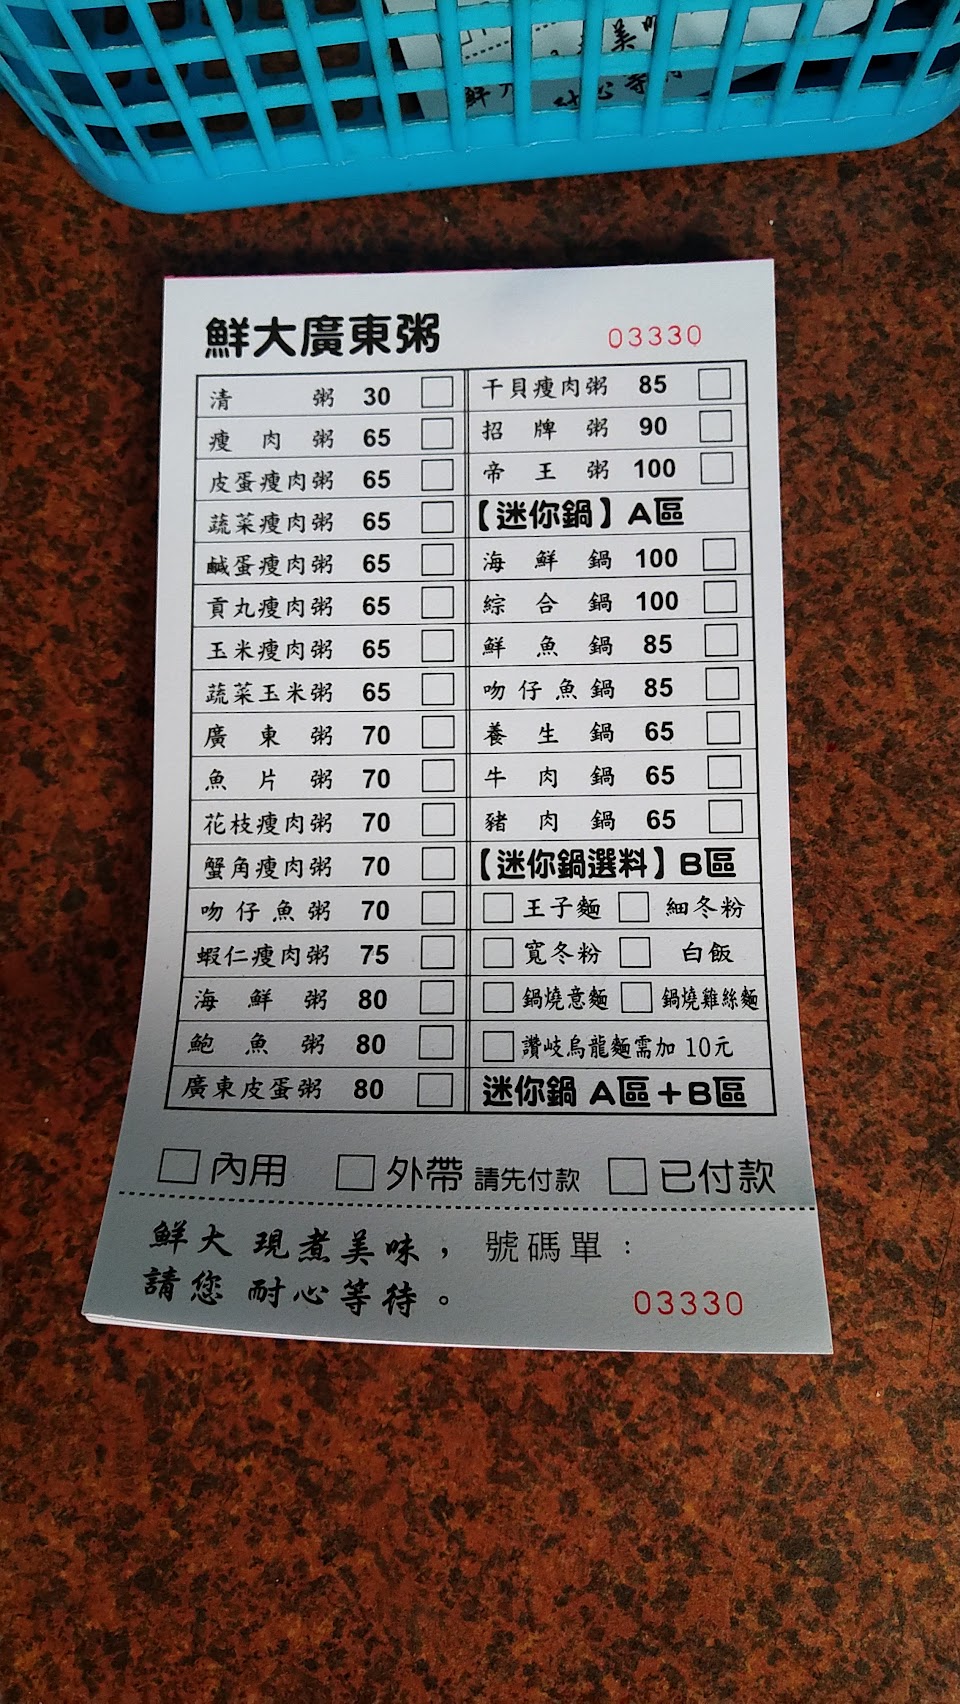 美味
鮮 耐心等
鮮大廣東粥 03330
清粥 30
瘦肉粥 65
皮蛋瘦肉粥 65
蔬菜瘦肉粥 65
鹹蛋瘦肉粥 65
貢丸瘦肉粥 65
玉米瘦肉粥 65
蔬菜玉米粥 65
廣東粥 70
魚片粥 70
花枝瘦肉粥 70
蟹角瘦肉粥 70
吻仔魚粥 70
蝦仁瘦肉粥 75
海鮮粥 80
鮑魚粥 80
廣東皮蛋粥 80
干貝瘦肉粥 85
招牌粥 90
帝王粥 100
【迷你鍋】A區
海鮮鍋 100
綜合鍋 100
鮮魚鍋 85
吻仔魚鍋 85
養生鍋 65
牛肉鍋 65
豬肉鍋 65
【迷你鍋選料】B區
王子麵 細冬粉
寬冬粉 白飯
鍋燒意麵 鍋燒雞絲麵
讚岐烏龍麵需加 10元
迷你鍋 A區+B區
內用 外帶 請先付款 已付款
鮮大 現煮美味, 號碼單:
請您 耐心等待。 03330